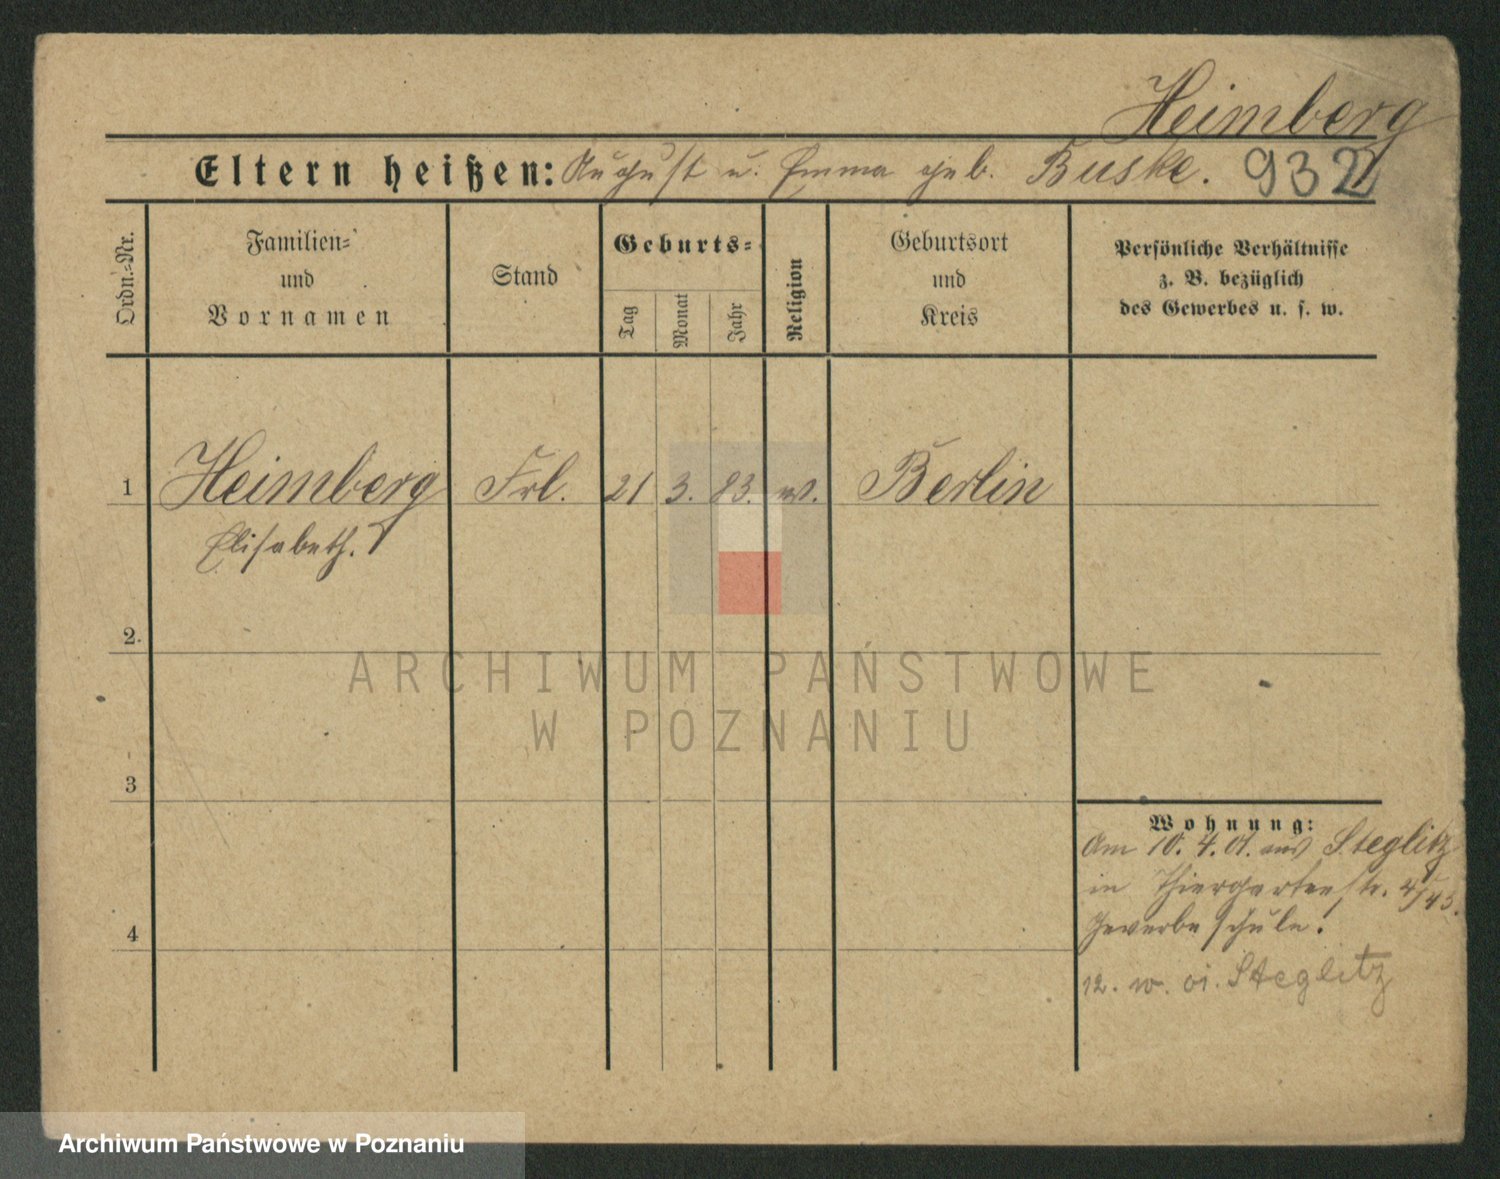 Heimberg
Eltern heißen: August u. Emma geb. Buske. 932
Ordn.-Nr.
Familien- und Vornamen
Stand
Geburts-
Tag
Monat
Jahr
Religion
Geburtsort und Kreis
Persönliche Verhältnisse
z. B. bezüglich
des Gewerbes u. s. w.
1 Heimberg Frl. 21 3. 83. Berlin
Elisabeth.
2.
3
4
Wohnung:
Am 10. 4. 01. aus Steglitz
in Thiergartenstr. 4/43.
Gewerbeschule.
12. 01. Steglitz
ARCHIWUM PAŃSTWOWE
W POZNANIU
Archiwum Państwowe w Poznaniu